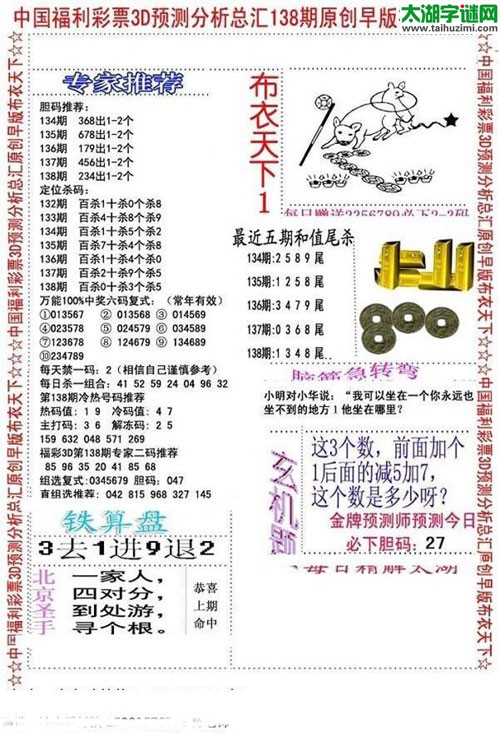 太湖字谜网
www.taihuzimi.com
中国福利彩票3D预测分析总汇138期原创早版
☆☆中国福利彩票3D预测分析总汇原创早版布衣天下☆☆
☆☆中国福利彩票3D预测分析总汇原创早版布衣天下☆☆
专家推荐
胆码推荐：
134期 368出1-2个
135期 678出1-2个
136期 179出1-2个
137期 456出1-2个
138期 234出1-2个
定位杀码：
132期 百杀1十杀0个杀8
133期 百杀9十杀0个杀9
134期 百杀8十杀4个杀2
135期 百杀4十杀4个杀0
136期 百杀4十杀0个杀3
137期 百杀2十杀9个杀5
138期 百杀0十杀3个杀5
万能100%中奖六码复式：（常年有效）
①013567 ②013568 ③014569
④023578 ⑤024579 ⑥034589
⑦123678 ⑧124679 ⑨134689
⑩234789
每天禁一码：2（相信自己谨慎参考）
每日杀一组合：41 52 59 24 04 96 32
第138期冷热号码推荐
热码值：1 9 冷码值：4 7
主打码：3 6 解冻码：2 5
159 632 048 571 269
福彩3D第138期专家二码推荐
85 96 35 20 41 85 68
组选复式：0345679 胆码：047
直组选推荐：042 815 968 327 145
铁算盘
3去1进9退2
北京圣手
一家人，
四对分，
到处游，
寻个根。
恭喜
上期
命中
布衣天下1
每日赠送2356789必下2-3码
最近五期和值尾杀
134期:2 5 8 9 尾
135期:1 2 5 8 尾
136期:3 4 7 9 尾
137期:0 3 6 8 尾
138期:1 3 4 8 尾
脑筋急转弯
小明对小华说：“我可以坐在一个你永远也
坐不到的地方！他坐在哪里？
玄机题
这3个数，前面加个
1后面的减5加7，
这个数是多少呀？
金牌预测师预测今日
必下胆码：27
每日精解太湖